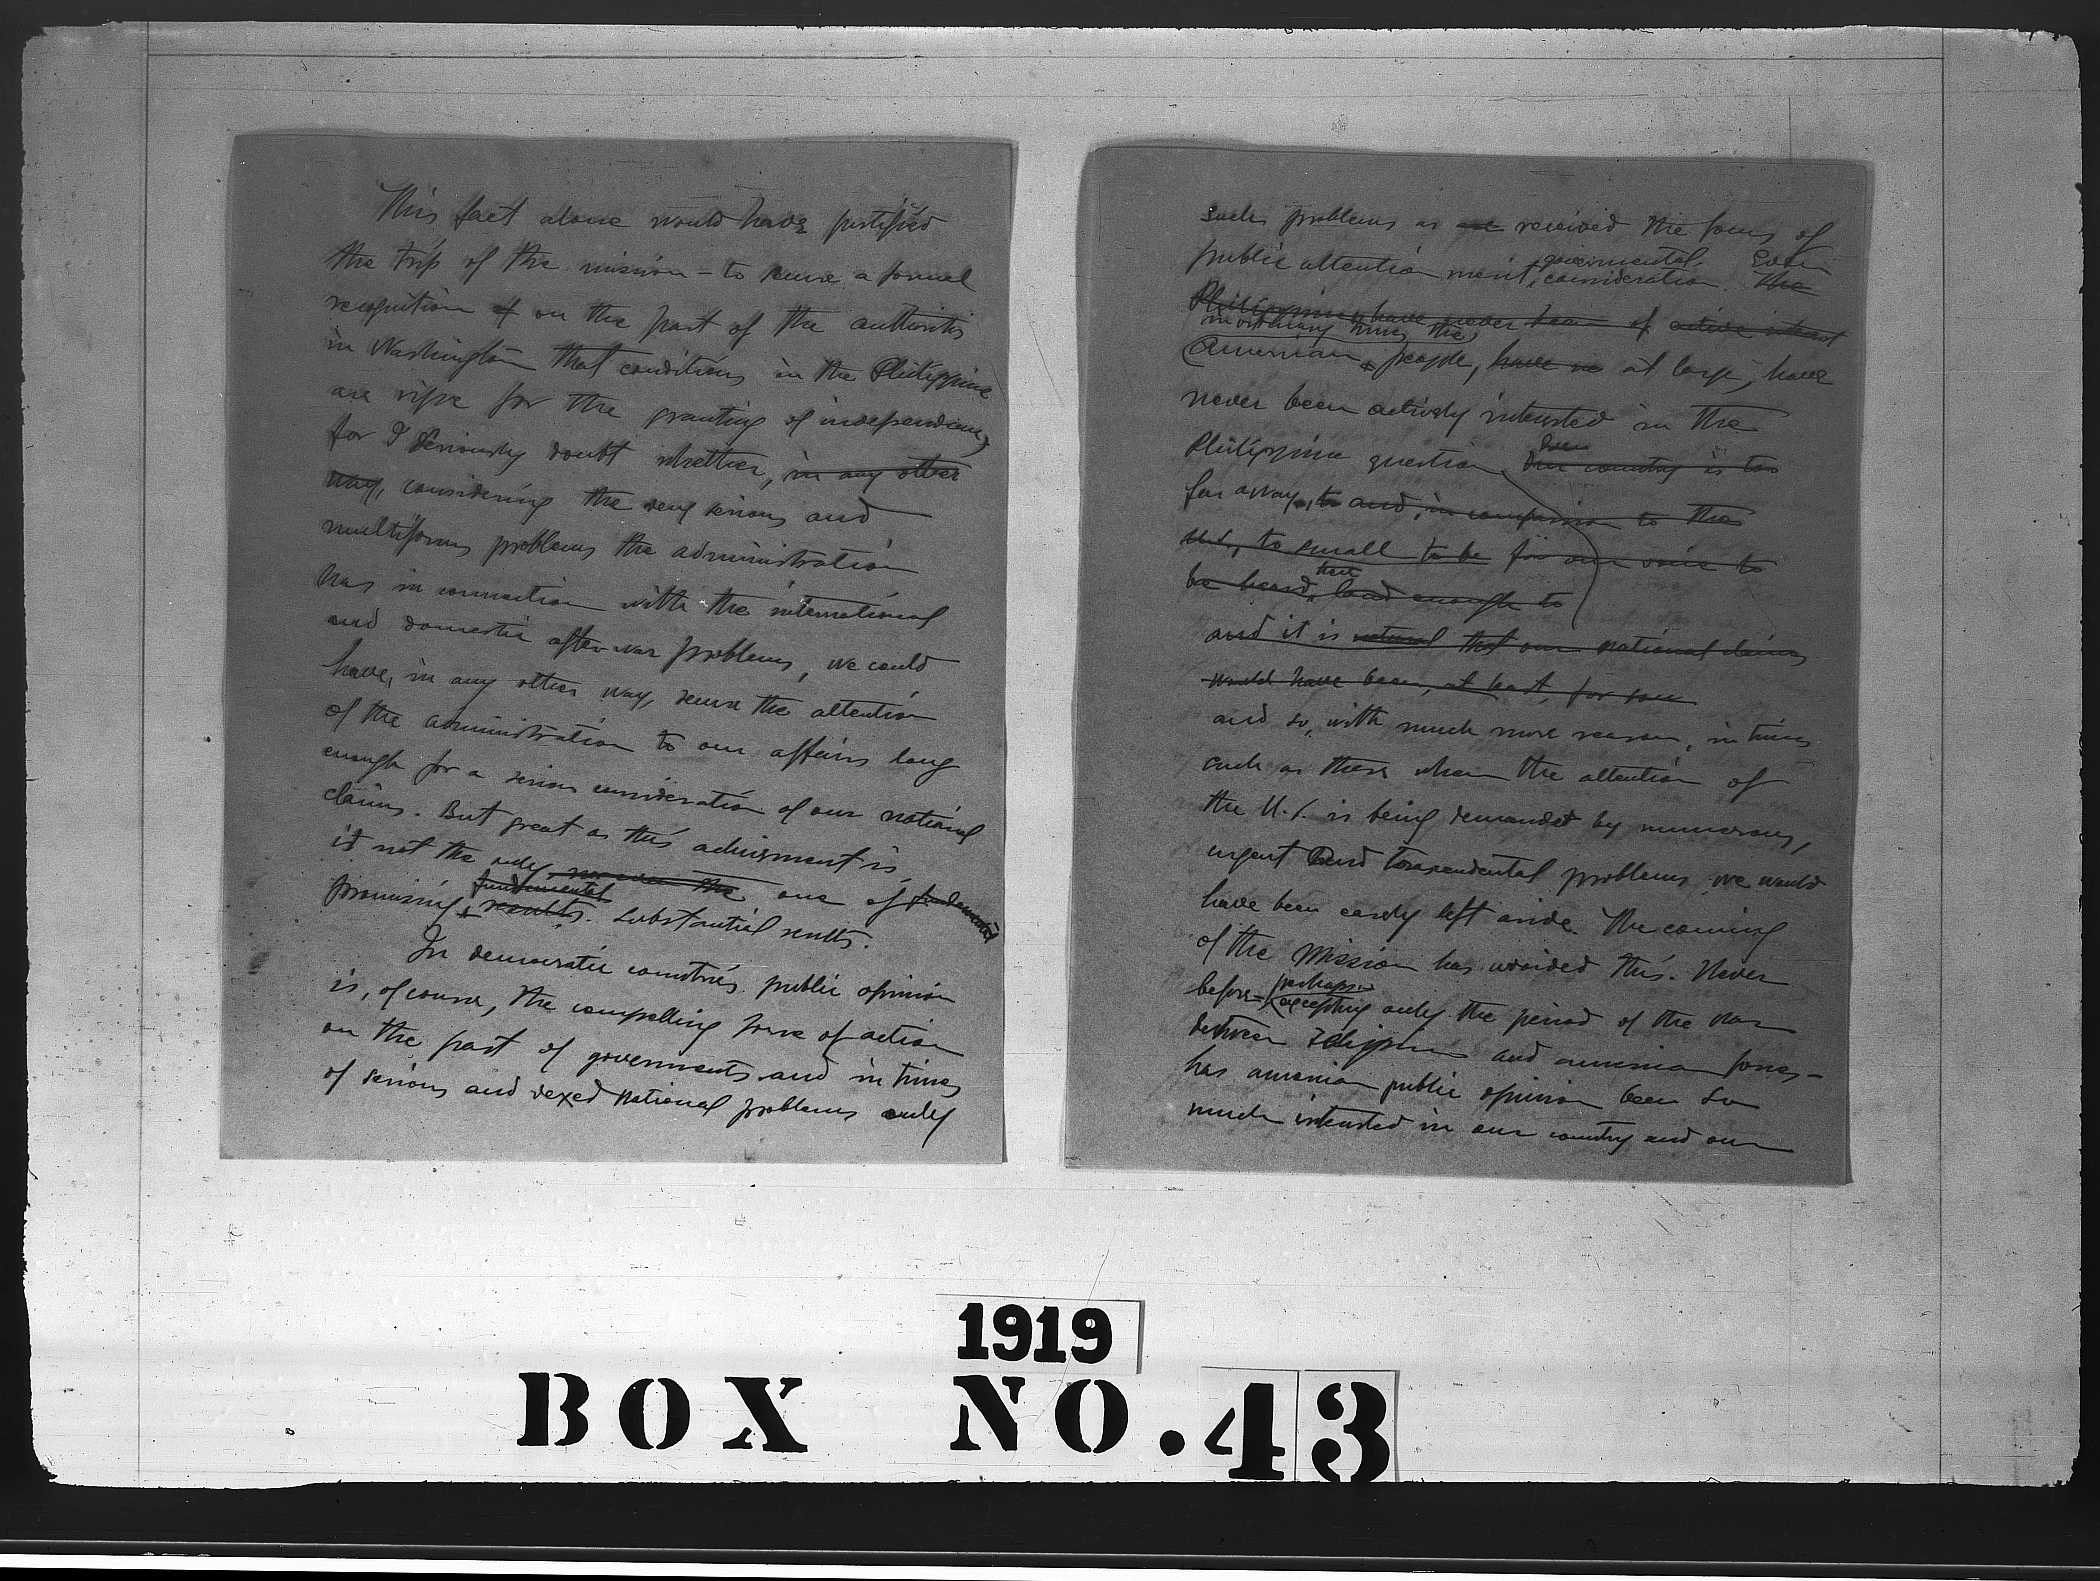 This fact alone would have justified
the trip of the mission – to secure a formal
recognition of on the part of the authoritis
in Washington that conditions in the Philippine
are ripe for the granting of independence,
for I seriously doubt whether, in any other
way, considering the very serious and
multiforms problems the administration
has in connection with the international
and domestic after war problems, we could
have, in any other way, secure the attention
of the administration to our affairs long
enough for a serious consideration of our national
claims. But great as this achievment is,
it not the only nor even the one of fundamental
fundamental
promising results. substantial results.
In democratic countries public opinion
is, of course, the compelling force of action
on the part of governments and in times
of serious and vexed national problems only
such problems as are received the focus of
public attention merit governmental consideration. The Even
Philippines have never been of active interest
in ordinary times, the
American people, have no at large, have
never been actively interested in the
Philippine question. Our country is too
far away, to and, in comparison to the
U.S., to small to be for our voice to
be heard, loud enough to
and it is natural that our national claims
would have been, at least, for some
and so, with much more reason, in times
such as these when the attention of
the U.S. is being demanded by numerous,
urgent and transcendental problems we would
have been easely left aside. The coming
of the Mission has avoided this. Never
before – (perhaps
excepting only the period of the war
between Filipinos and american forces –
has american public opinion been so
much interested in our country and our
1919
BOX NO. 43